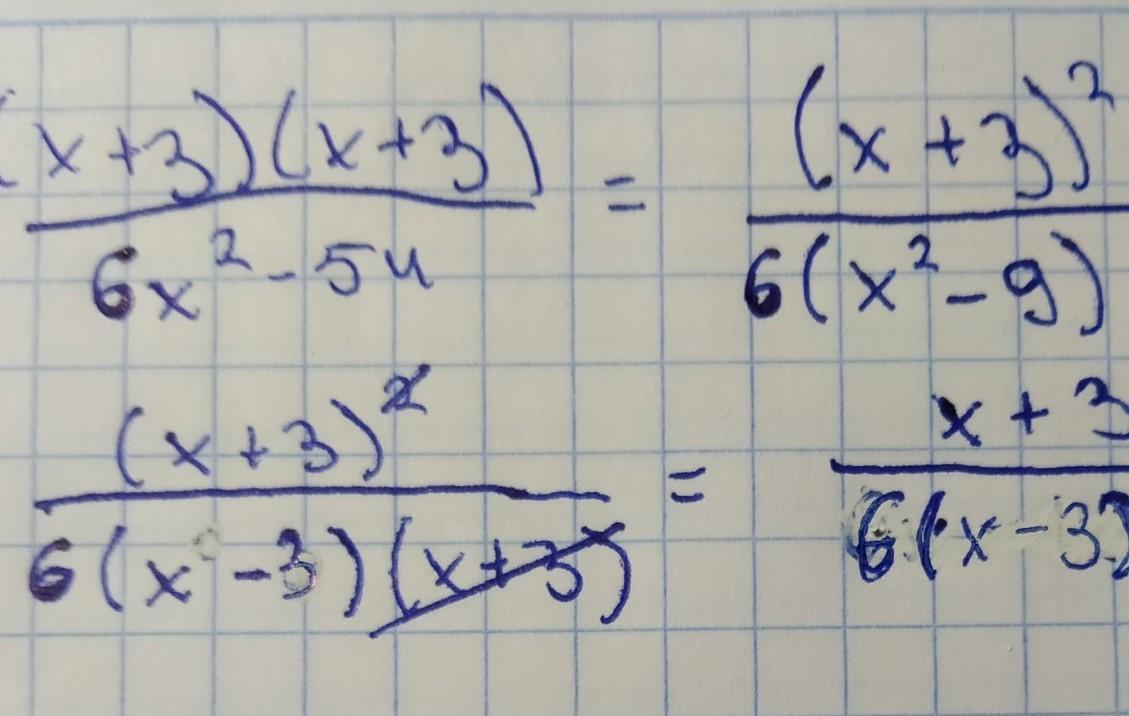 (x+3)(x+3)/6x²-54 = (x+3)²/6(x²-9)
(x+3)²/6(x-3)(x+3) = x+3/6(x-3)